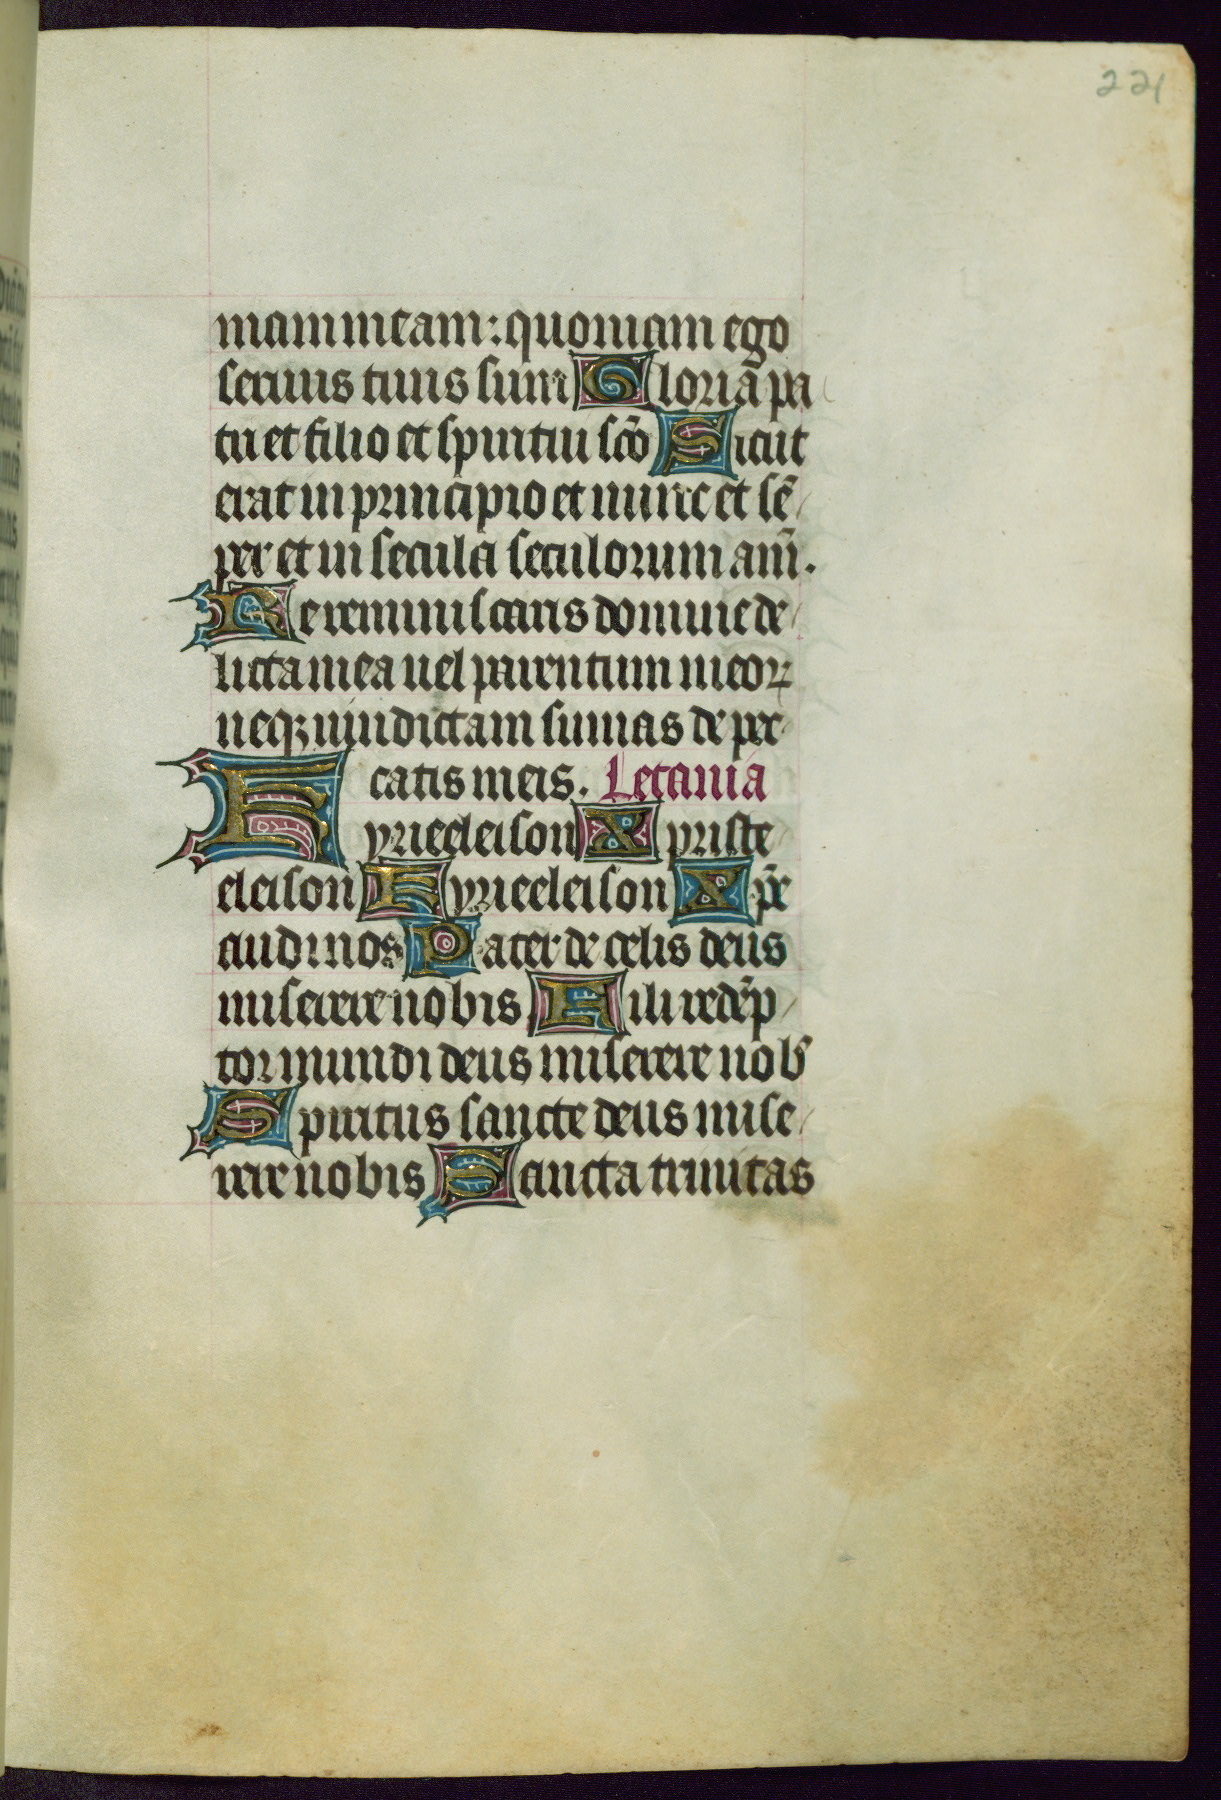 221
mam meam: quoniam ego
seruus tuus sum Gloriā pa
tri et filio et spiritui scō Sicut
erat in principio et nunc et sē
per et in secula seculorum am̄.
Ne reminiscaris domine de
licta mea uel parentum meoꝝ
neqꝫ uindictam sumas de pec
catis meis. Letania
Kyrieeleison Xpriste
eleison Kyrieeleison Xp̄e
audi nos Pater de celis deus
miserere nobis Fili redēp
tor mundi deus miserere nob̄
Spiritus sancte deus mise
rere nobis Sancta trinitas